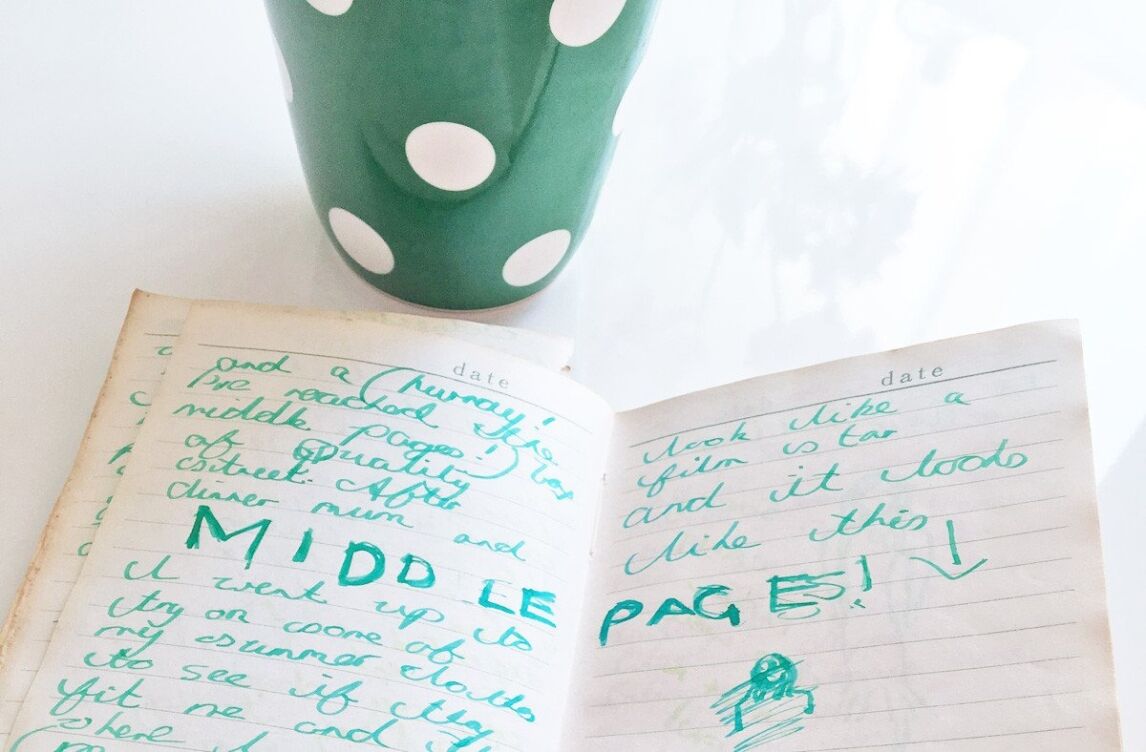 date
and a (hurray!
I've reached the
middle pages!) box
of Quality
street. After
dinner mum and
MIDDLE
I went up to
try on some of
my summer clothes
to see if they
fit me and
where I
date
look like a
film star
and it looks
like this ↓
PAGES!